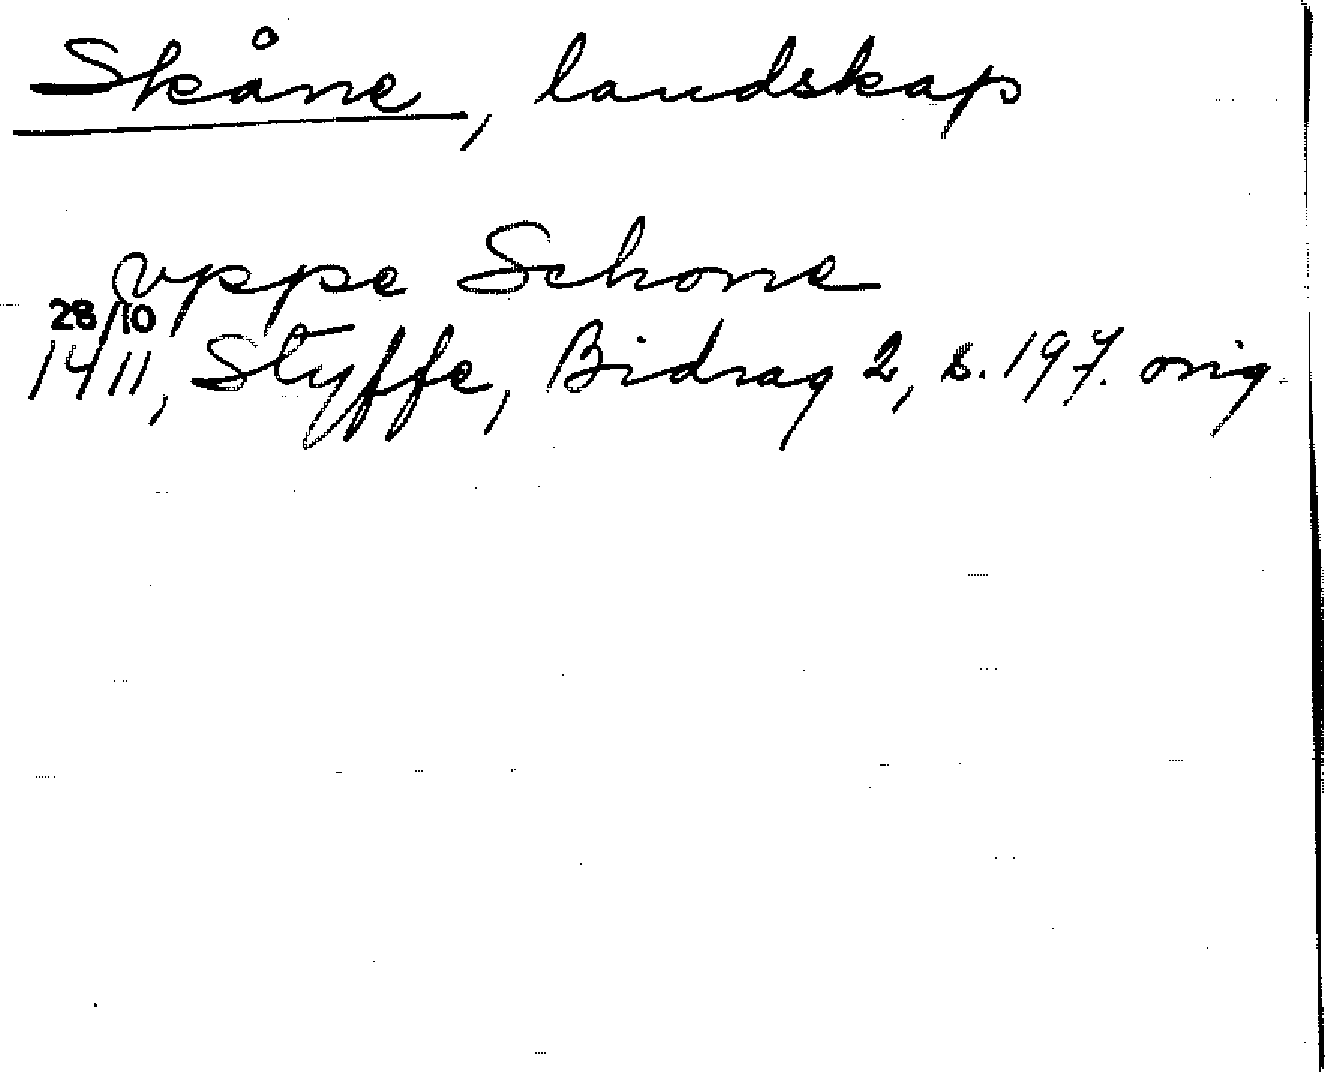 Skåne, landskap
vppe Schone
28/10
1411, Styffe, Bidrag 2, s. 197. orig.